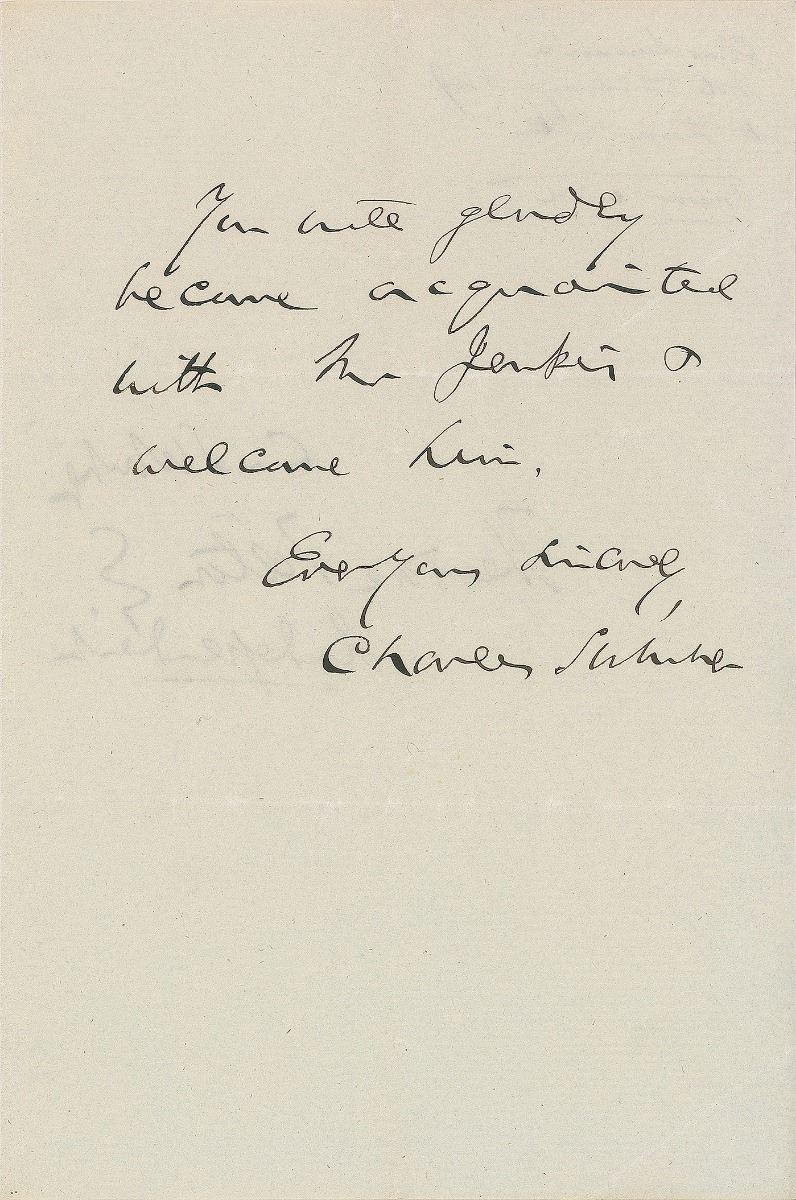 You will gladly
become acquainted
with Mr Jenkins &
welcome him.
Ever Yours sincerely,
Charles Sumner